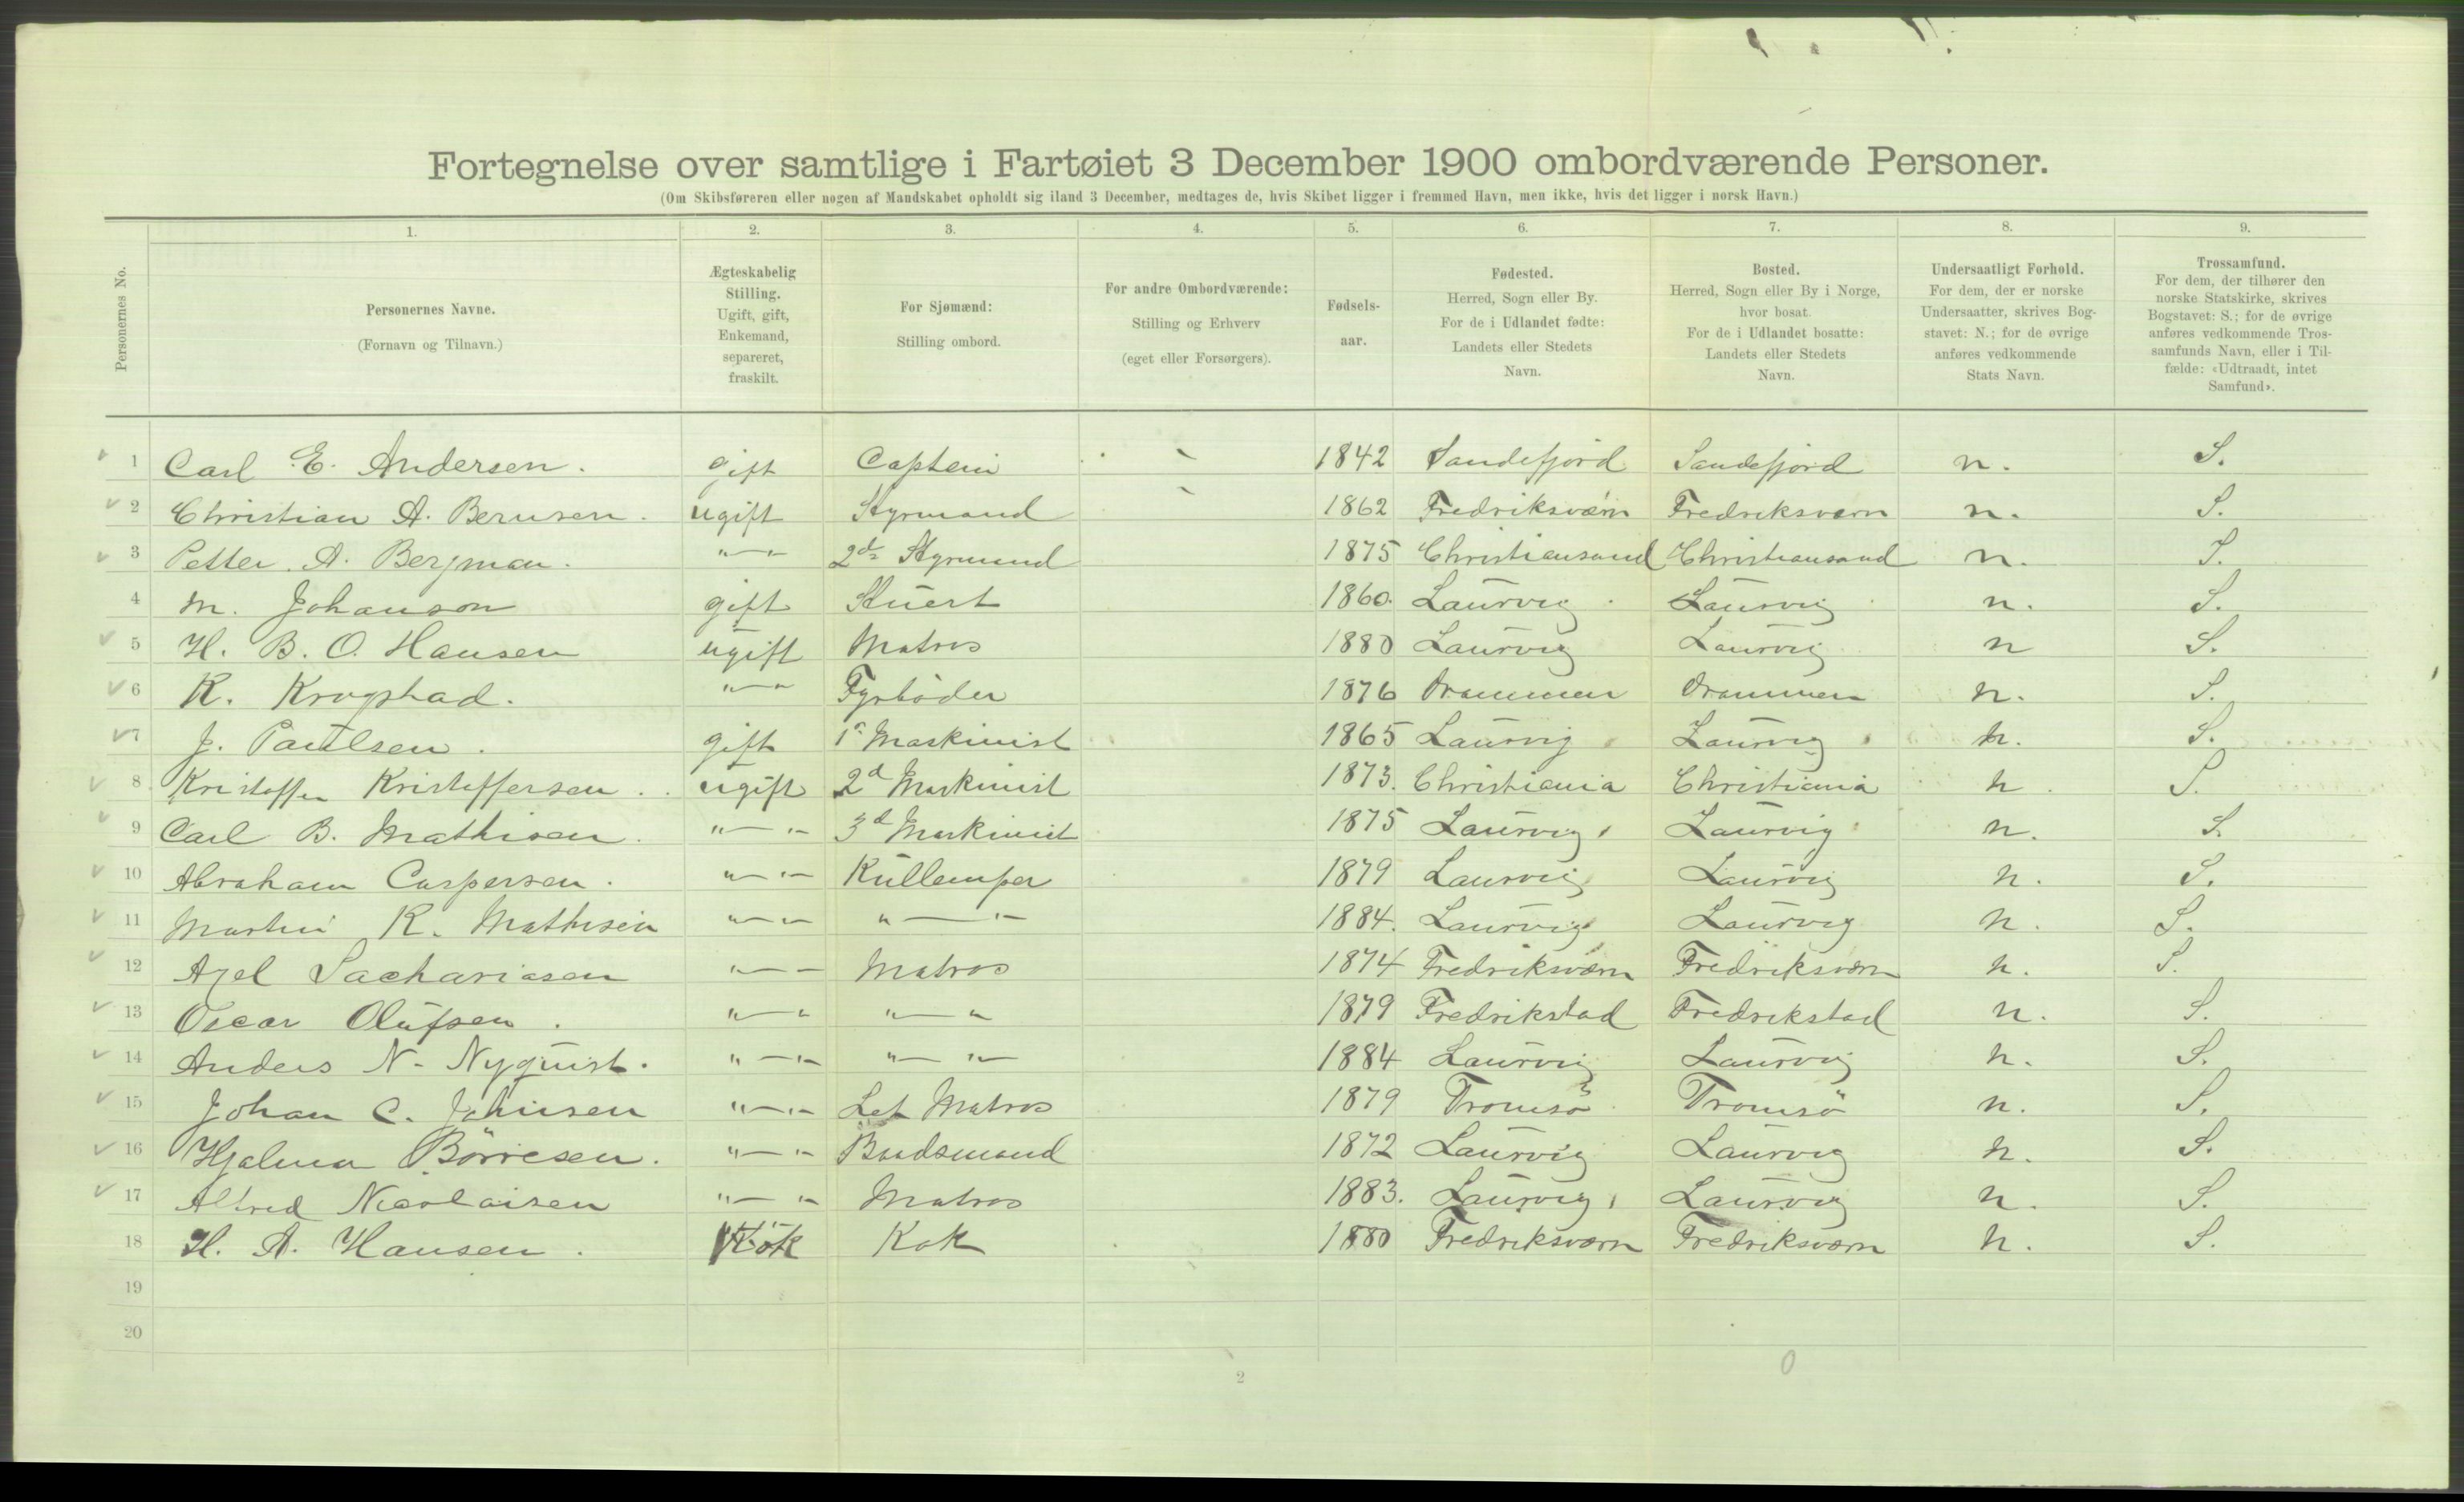 Fortegnelse over samtlige i Fartøiet 3 December 1900 ombordværende Personer.
(Om Skibsføreren eller nogen af Mandskabet opholdt sig iland 3 December, medtages de, hvis Skibet ligger i fremmed Havn, men ikke, hvis det ligger i norsk Havn.)
Personernes No.
1. 2. 3. 4. 5. 6. 7. 8. 9.
Personernes Navne.
(Fornavn og Tilnavn.)
Ægteskabelig
Stilling.
Ugift, gift,
Enkemand,
separeret,
fraskilt.
For Sjømænd:
Stilling ombord.
For andre Ombordværende:
Stilling og Erhverv
(eget eller Forsørgers).
Fødsels-
aar.
Fødested.
Herred, Sogn eller By.
For de i Udlandet fødte:
Landets eller Stedets
Navn.
Bosted.
Herred, Sogn eller By i Norge,
hvor bosat.
For de i Udlandet bosatte:
Landets eller Stedets
Navn.
Undersaatligt Forhold.
For dem, der er norske
Undersaatter, skrives Bog-
stavet: N.; for de øvrige
anføres vedkommende
Stats Navn.
Trossamfund.
For dem, der tilhører den
norske Statskirke, skrives
Bogstavet: S.; for de øvrige
anføres vedkommende Tros-
samfunds Navn, eller i Til-
fælde: «Udtraadt, intet
Samfund».
1 Carl E. Andersen. gift Captein 1842 Sandefjord Sandefjord n. S.
2 Christian A. Berusen. ugift Styrmand 1862 Fredriksværn Fredriksværn n. S.
3 Petter A. Bergman. "—" 2de Styrmand 1875 Christiansand Christiansand n. S.
4 M. Johanson gift Stuert 1860. Laurvig Laurvig n. S.
5 H. B. O. Hansen ugift Matros 1880 Laurvig Laurvig n S.
6 K. Krogstad. "—" Fyrböder 1876 Drammen Drammen n. S.
7 J. Paulsen. gift 1e Maskinist 1865 Laurvig Laurvig n. S.
8 Kristoffer Kristoffersen. ugift 2d Maskinist 1873. Christiania Christiania n. S.
9 Carl B. Mathisen. "—" 3d Maskinist 1875 Laurvig Laurvig n. S.
10 Abraham Caspersen. "—" Kullemper 1879 Laurvig Laurvig n. S.
11 Martin K. Mathisen "—" "—" 1884. Laurvig Laurvig n. S.
12 Axel Sachariasen "—" Matros 1874 Fredriksværn Fredriksværn n. S.
13 Oscar Olufsen. "—" "—" 1879 Fredrikstad Fredrikstad n. S.
14 Anders N. Nyquist. "—" "—" 1884 Laurvig Laurvig n. S.
15 Johan C. Johnsen "—" Let Matros 1879 Tromsö Tromsö n. S.
16 Hjalmar Börresen. "—" Baadsmand 1872 Laurvig Laurvig n. S.
17 Alfred Nicolaisen "—" Matros 1883. Laurvig Laurvig n. S.
18 H. A. Hansen. Kok Kok 1880 Fredriksværn Fredriksværn n. S.
19
20
2
0